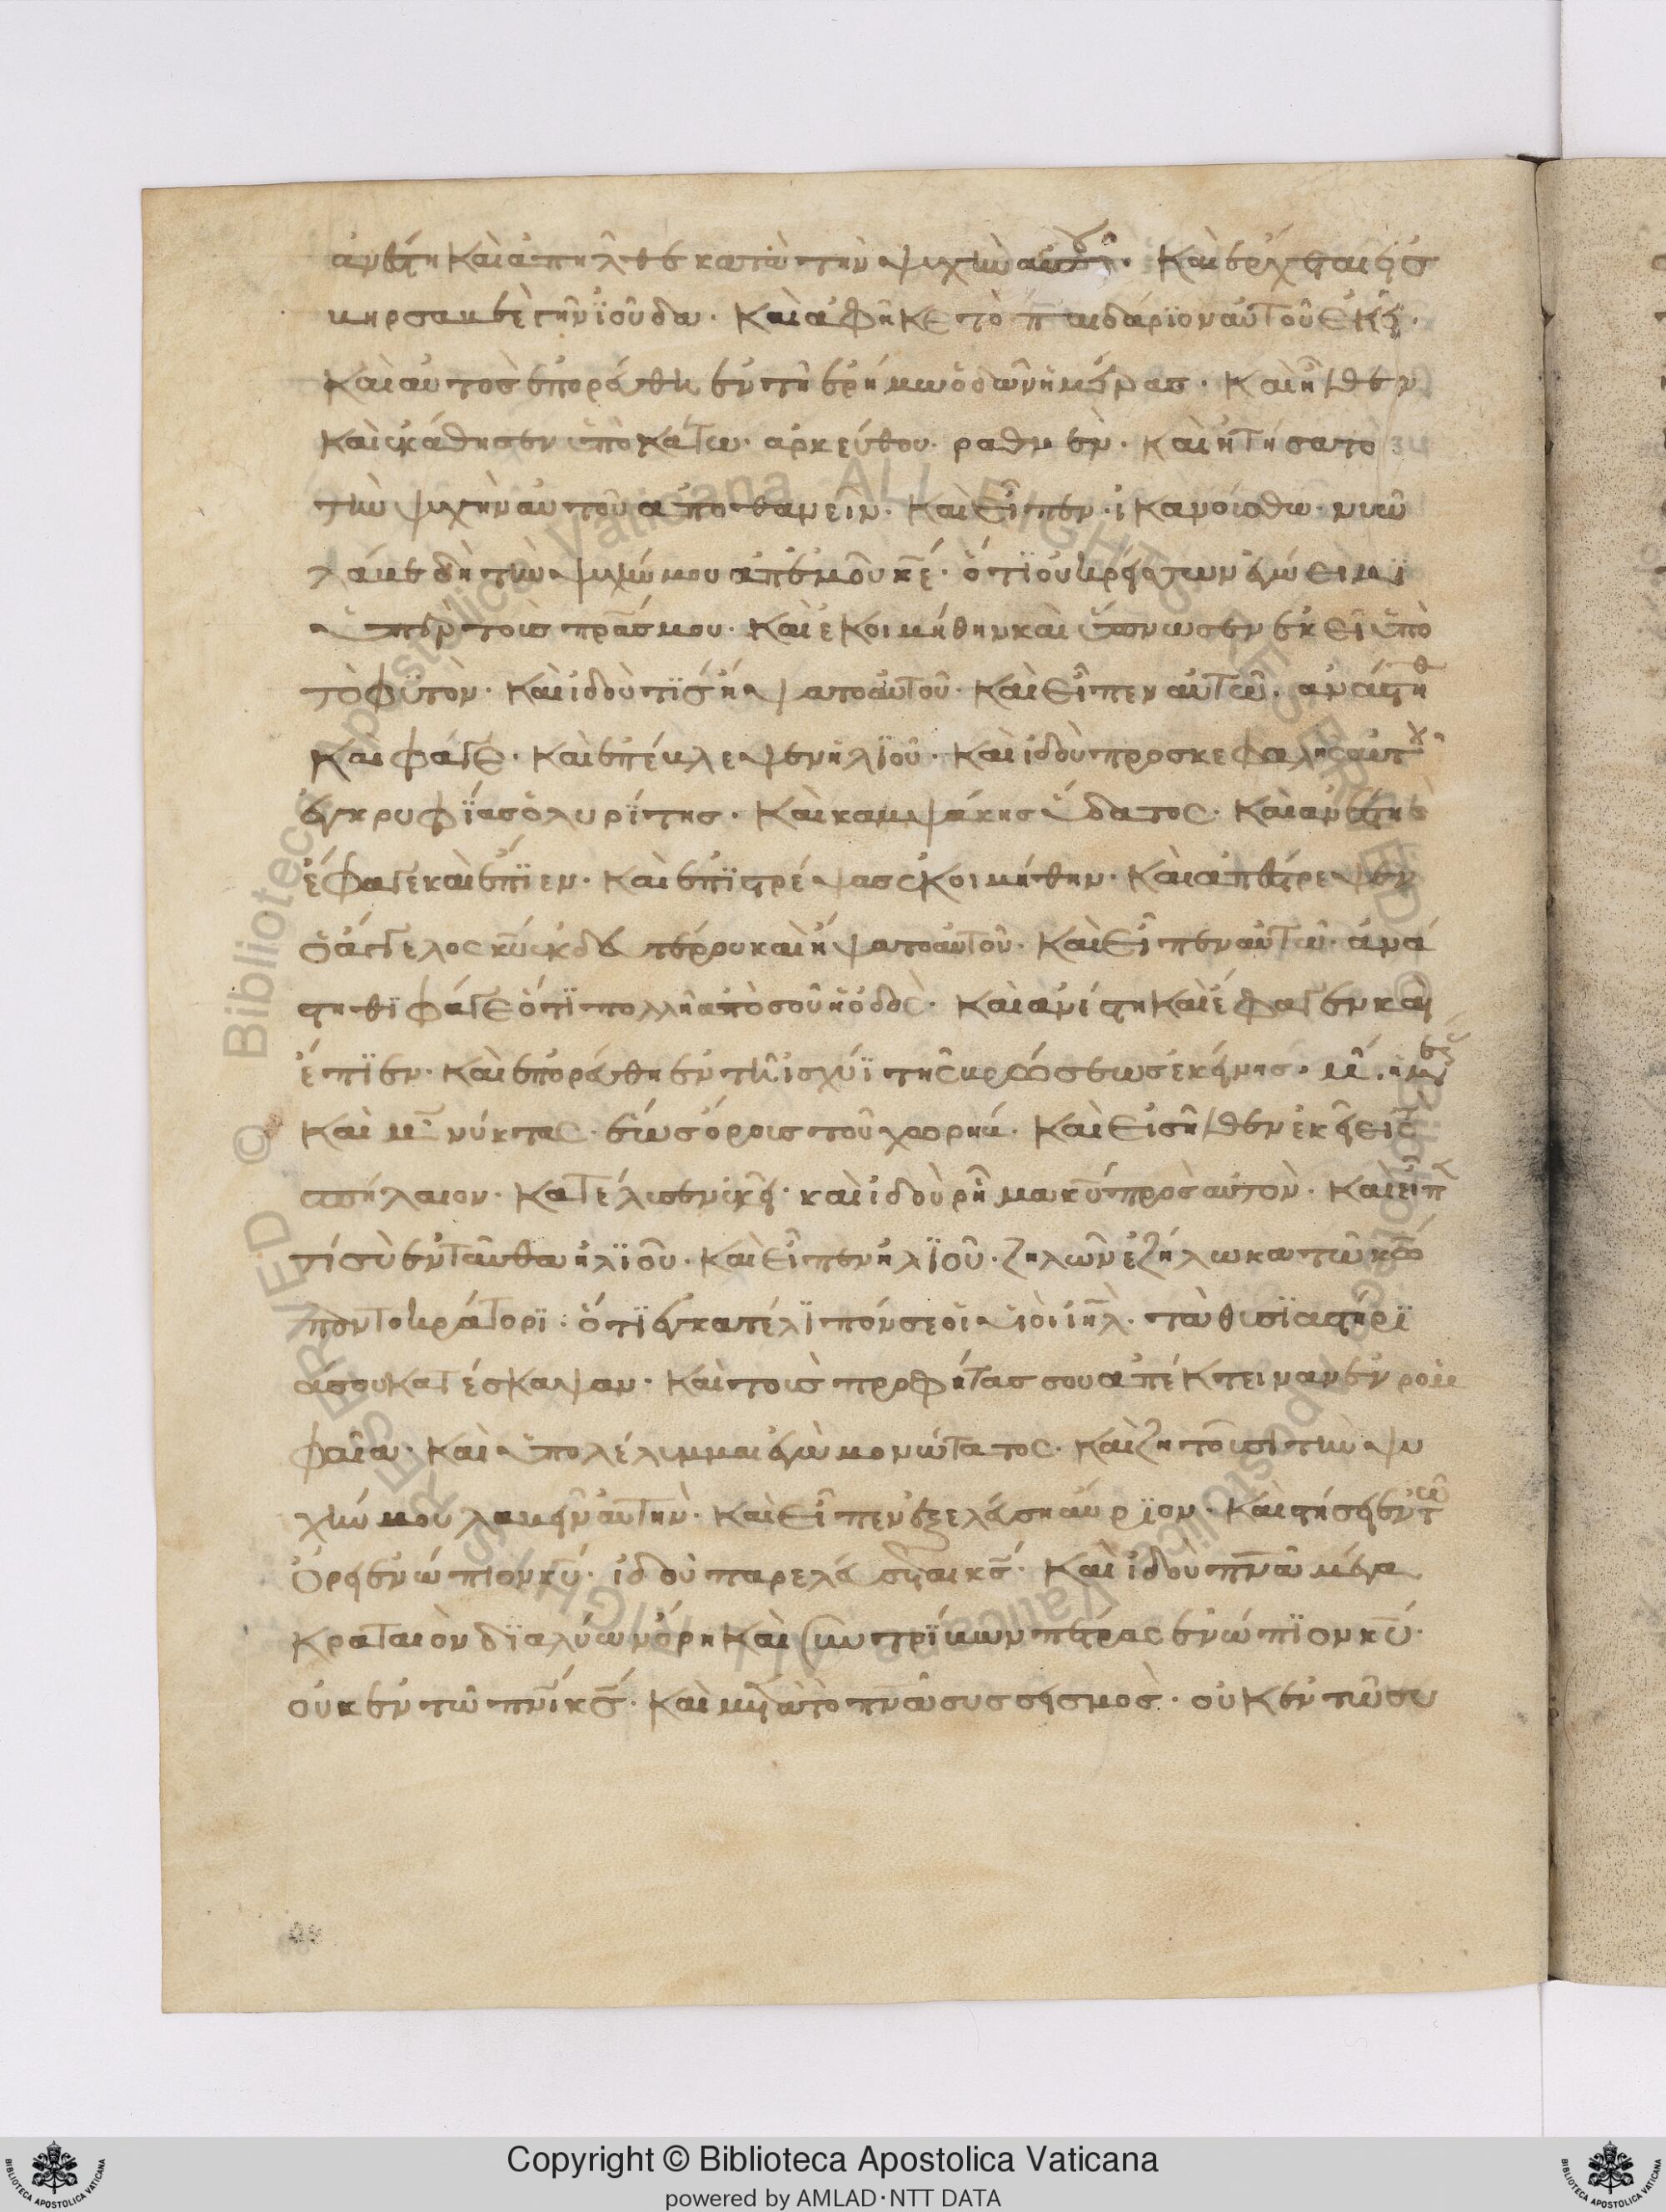 ἀνέστη καὶ ἀπῆλθε κατὰ τὴν ψυχὴν αὐτοῦ· καὶ ἔρχεται εἰς
βηρσαβεὲ τὴν ϊοῦδα· καὶ ἀφῆκε τὸ παιδάριον αὐτοῦ ἐκεῖ·
καὶ αὐτὸς ἐπορεύθη ἐν τῆ ἐρήμω ὁδὸν ἡμέρας· καὶ ἦλθεν
καὶ ἐκάθησεν ὑπὸ κάτω ἀρκεύθου ραθμέν· καὶ ἠτήσατο
τὴν ψυχὴν αὐτοῦ ἀποθανεῖν· καὶ εἶπεν· ἱκανούσθω νῦν
λάβε δὴ τὴν ψυχήν μου ἀπ' ἐμοῦ κε̅· ὅτϊ οὐ κρείσσων ἐγώ εἰμϊ
ὑπὲρ τοὺς πρα̅ς μου· καὶ ἐκοιμήθην καὶ ὕπνωσεν ἐκεῖ ὑπὸ
τὸ φϋτὸν· καὶ ἰδοὺ τὶς ἥψατο αὐτοῦ· καὶ εἶπεν αὐτῶ· ἀνάστηθ
καὶ φάγε· καὶ ἐπέβλεψεν ἠλϊοῦ· καὶ ἰδοὺ πρὸς κεφαλῆς αὐτοῦ
ἐγκρυφΐας ὀλυρΐτης· καὶ καμψάκης ὕδατος· καὶ ἀνέστη
ἔφαγε καὶ ἔπϊεν· καὶ ἐπϊστρέψας ἐκοιμήθην· καὶ ἀπέστρεψεν
ὁ ἄγγελος κυ̅ ἐκ δευτέρου καὶ ἥψατο αὐτοῦ· καὶ εἶπεν αὐτῶ· ἀνά
στηθϊ φάγε ὅτϊ πολλὴ ἀπὸ σοῦ ἡ ὁδὸς· καὶ ἀνέστη καὶ ἔφαγεν καὶ
ἔπϊεν· καὶ ἐπορεύθη ἐν τῆ ἰσχύϊ τῆς βρώσεως ἐκείνης· μ̅· ἡμέρας
καὶ μ̅ νύκτας· ἕως ὄρους τοῦ χωρήβ· καὶ εἰσῆλθεν ἐκεῖ εἰς
σπήλαιον· κατέλυσεν ἐκεῖ· καὶ ἰδοὺ ρῆμα κυ̅ πρὸς αὐτὸν· καὶ εἶπε
τί σὺ ἐνταῦθα ἠλϊοῦ· καὶ εἶπεν ἠλϊοῦ· ζηλῶν ἐζήλωκα τῶ κω̅
παντοκράτορϊ· ὅτϊ ἐγκατέλϊπόν σε οἱ υἱοὶ ιη̅λ· τὰ θυσϊαστήρϊ
ά σου κατέσκαψαν· καὶ τοὺς προφήτας σου ἀπέκτειναν ἐν ρομ
φαία· καὶ ὑπολέλιμμαι ἐγὼ μονώτατος· καὶ ζητοῦσϊ τὴν ψυ
χήν μου λαβεῖν αὐτὴν· καὶ εἶπεν ἐξελεύση αὔρϊον· καὶ στήση ἐν τῶ
ὄρει ἐνώπιον κυ̅· ἰδοὺ παρελεύσεται κς̅· καὶ ἰδου πνα̅ μέγα
κραταιὸν δϊαλύων ὄρη καὶ συντρϊβων πέτρας ἐνώπϊον κυ̅·
οὐκ ἐν τῶ πνι̅ κς̅· καὶ μετὰ τὸ πνα̅ συσσεισμὸς· οὐκ ἐν τῶ συ
Copyright © Biblioteca Apostolica Vaticana
powered by AMLAD·NTT DATA